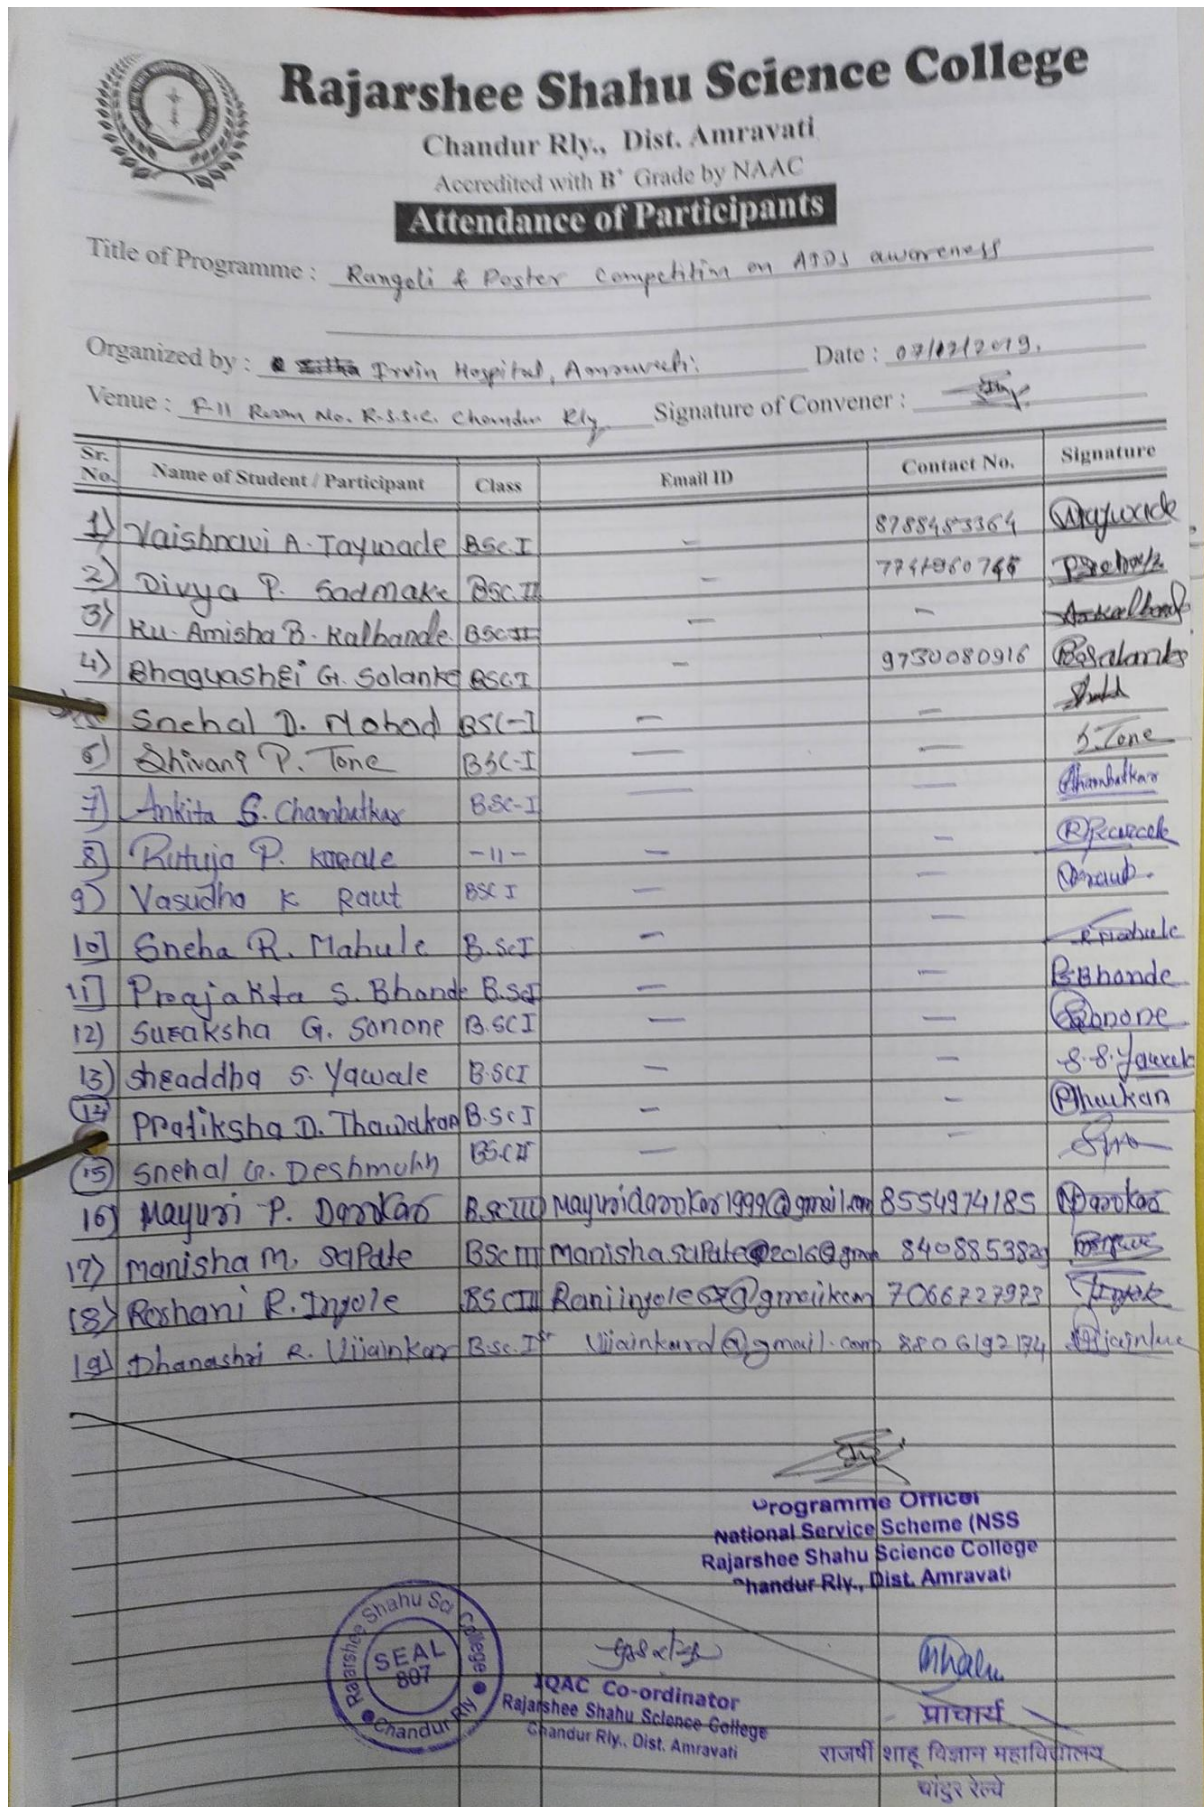 Rajarshee Shahu Science College
Chandur Rly., Dist. Amravati
Accredited with B+ Grade by NAAC
Attendance of Participants
Title of Programme : Rangoli & Poster Competition on AIDS awareness
Organized by : Irvin Hospital, Amravati. Date : 07/12/2019.
Venue : F-11 Room No. R.S.S.C. Chandur Rly Signature of Convener :
Sr. No. Name of Student / Participant Class Email ID Contact No. Signature
1) Vaishnavi A. Taywade BSc.I - 8788483364
2) Divya P. Sadmake BSC.II -
3) Ku. Amisha B. Kalbande. BSC II - -
4) Bhagyashri G. Solanke BSC.I - 9730080916
Snehal D. Mohod BSC-I - -
6) Shivani P. Tone BSC-I - - S.Tone
7) Ankita S. Chambatkar BSC-I - - Chambatkar
8) Rutuja P. Karale -11- - -
9) Vasudha K Raut BSC I - -
10] Sneha R. Mahule B.ScI - -
11] Prajakta S. Bhande B.ScI - - Bhande
12) Suraksha G. Sonone B.SCI - - Sonone
13) Shraddha S. Yawale B.SCI - - S.S.Yawale
Pratiksha D. Thawakar B.ScI - -
15) Snehal G. Deshmukh BSCII - -
16) Mayuri P. Darokar B.ScIII Mayuridarokar1999@gmail.com 8554974185 Darokar
17) Manisha M. Sapate BSc III
18) Roshani R. Ingole BSc III 7066727973 Ingole
19) Dhanashri R. Ujjainkar B.sc.Ist Ujjainkard@gmail.com 8806192174
Programme Officer
National Service Scheme (NSS
Rajarshee Shahu Science College
Chandur Rly., Dist. Amravati
Rajarshee Shahu Sci College
SEAL
807
Chandur Rly
IQAC Co-ordinator
Rajarshee Shahu Science College
Chandur Rly., Dist. Amravati
प्राचार्य
राजर्षी शाहू विज्ञान महाविद्यालय
चांदुर रेल्वे